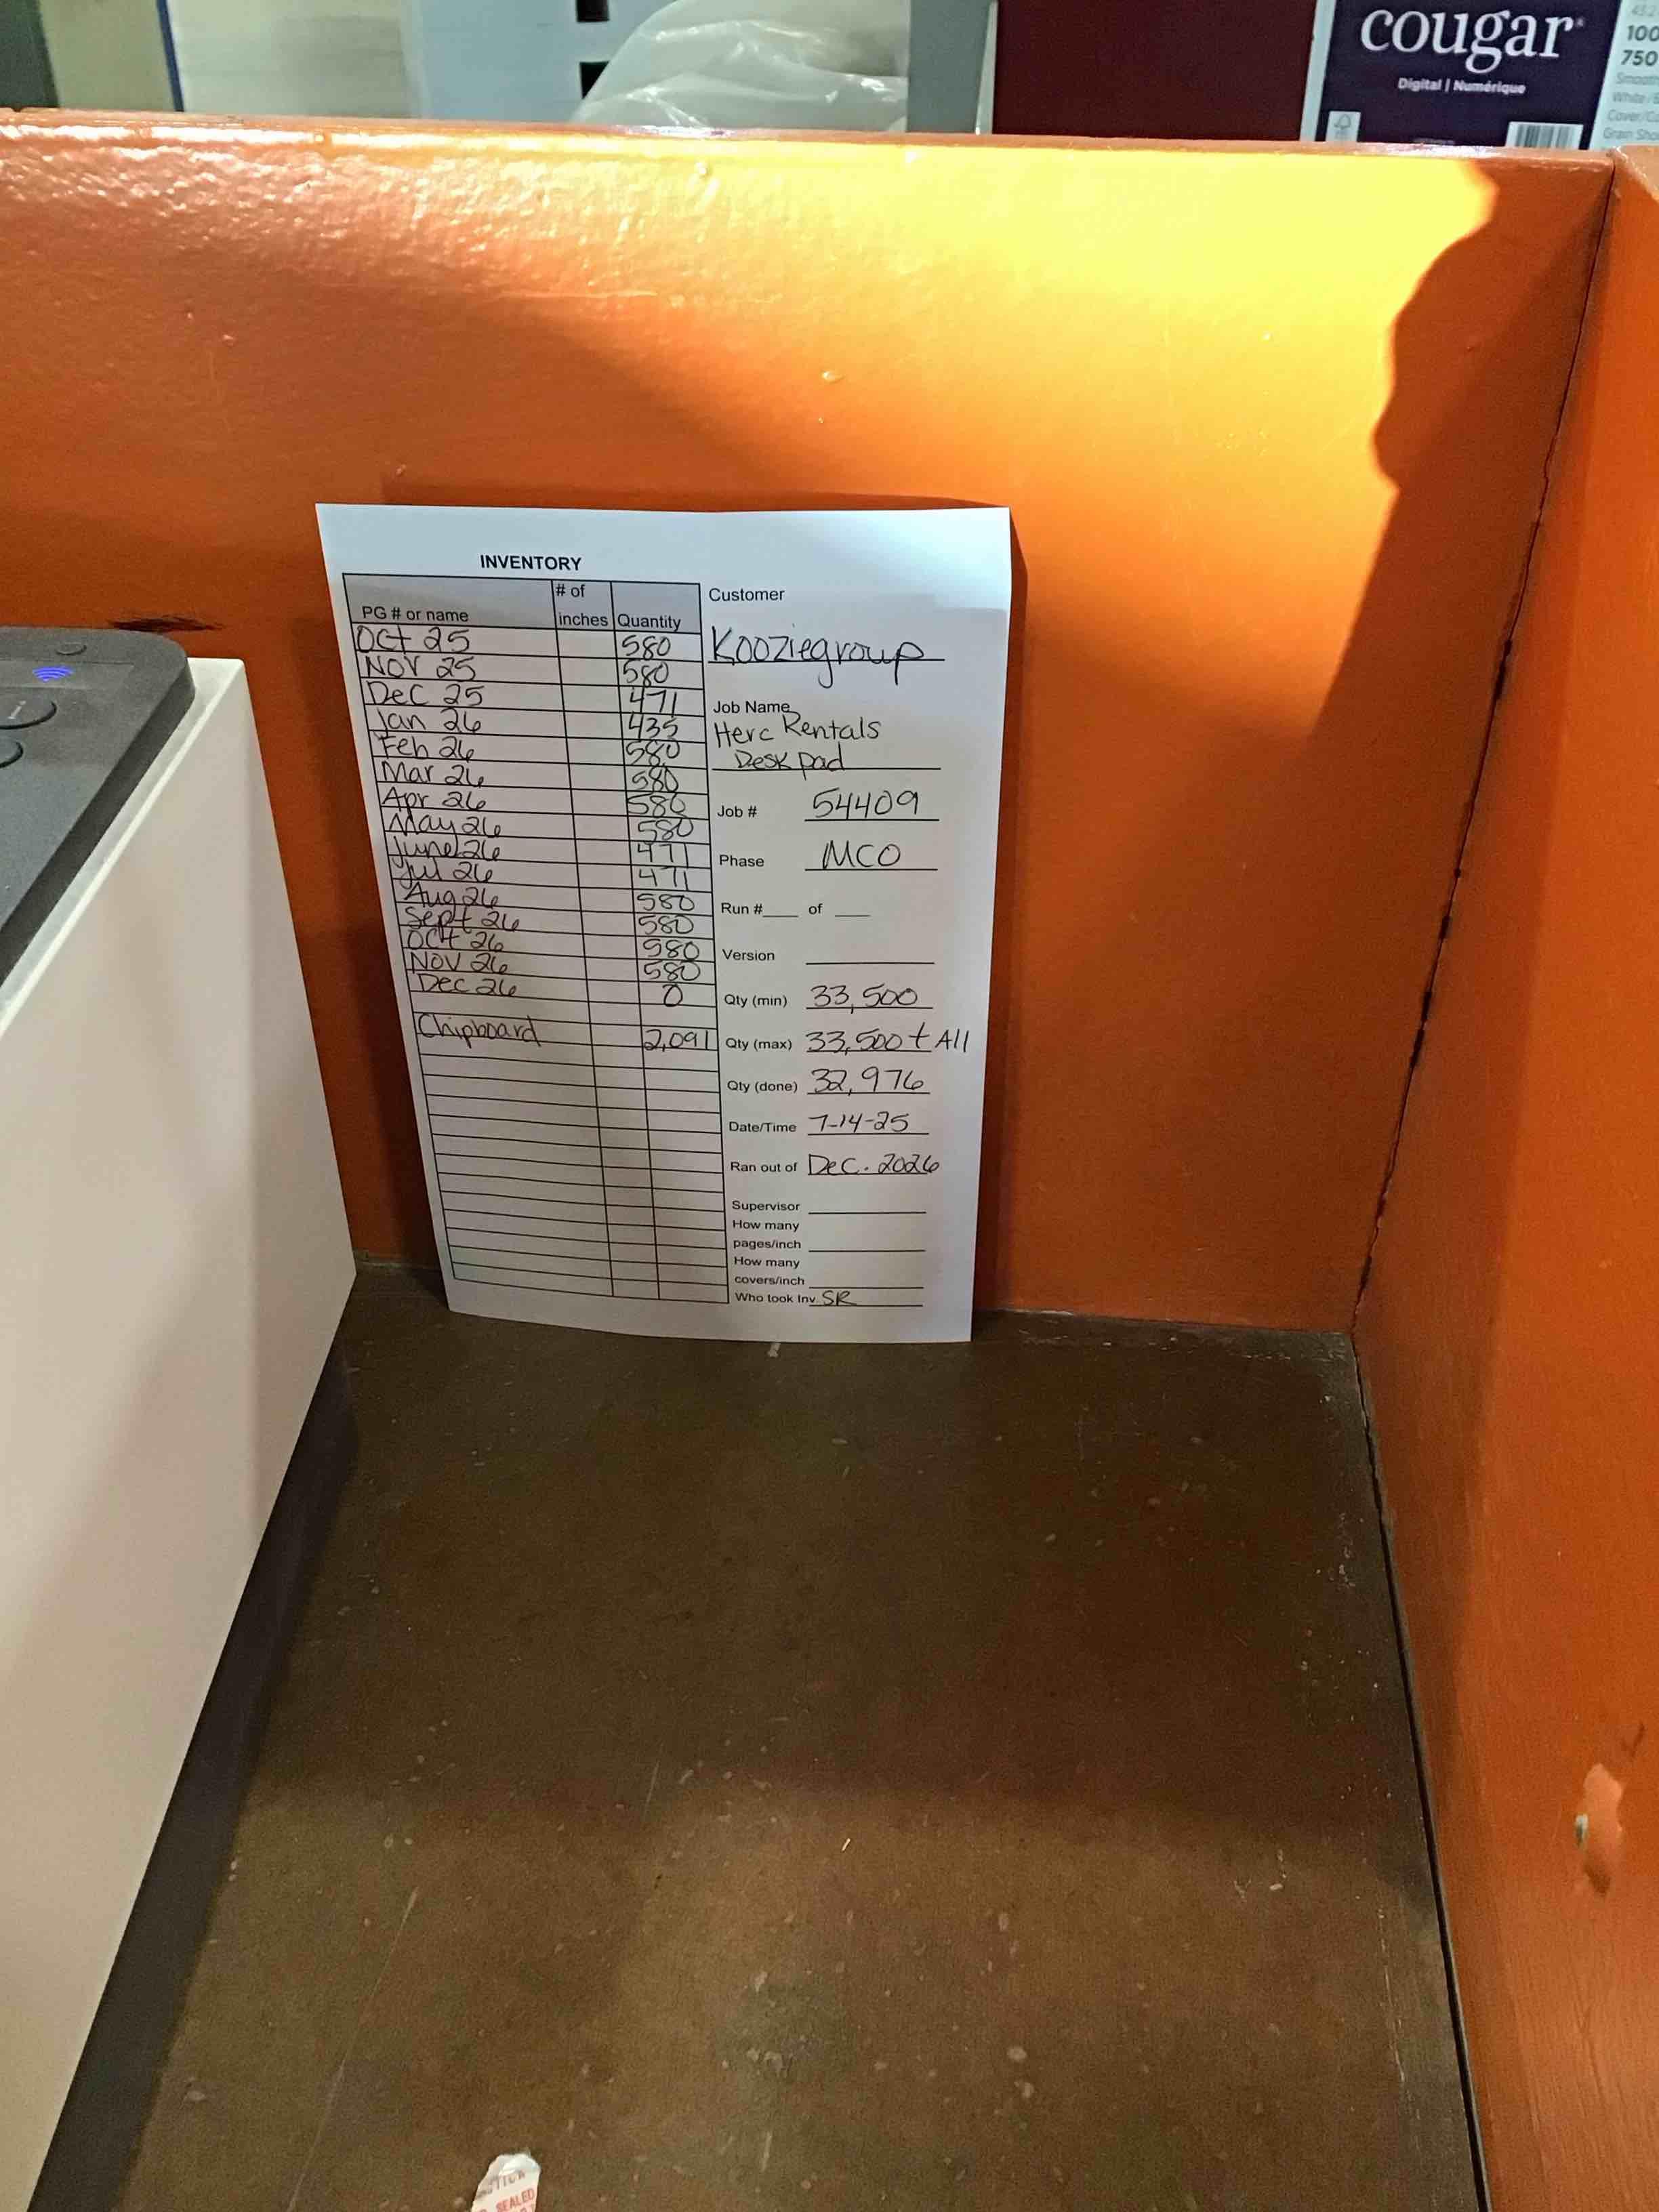 cougar
Digital | Numérique
100
750
INVENTORY
PG # or name # of inches Quantity
Oct 25 580
Nov 25 580
Dec 25 471
Jan 26 435
Feb 26 580
Mar 26 580
Apr 26 580
May 26 580
June 26 471
Jul 26 471
Aug 26 580
Sept 26 580
Oct 26 580
Nov 26 580
Dec 26 0
Chipboard 2,091
Customer
Kooziegroup
Job Name
Herc Rentals
Desk pad
Job # 54409
Phase MCO
Run #____ of ____
Version
Qty (min) 33,500
Qty (max) 33,500 + All
Qty (done) 32,976
Date/Time 7-14-25
Ran out of Dec. 2026
Supervisor
How many
pages/inch
How many
covers/inch
Who took Inv. SR
SEALED